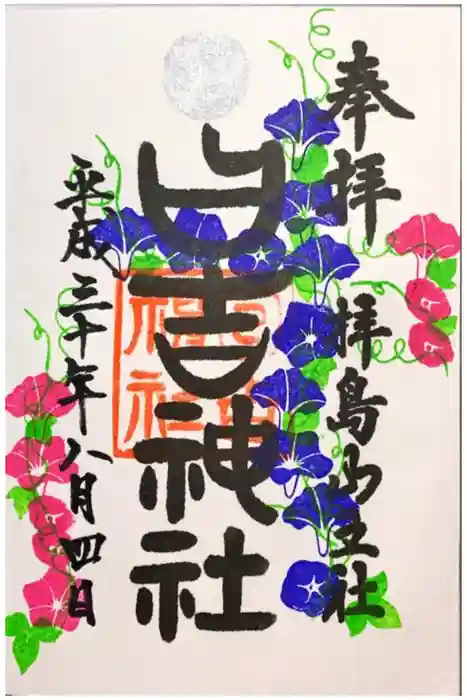 奉拝
拝島山王社
日吉神社
平成三十年八月四日